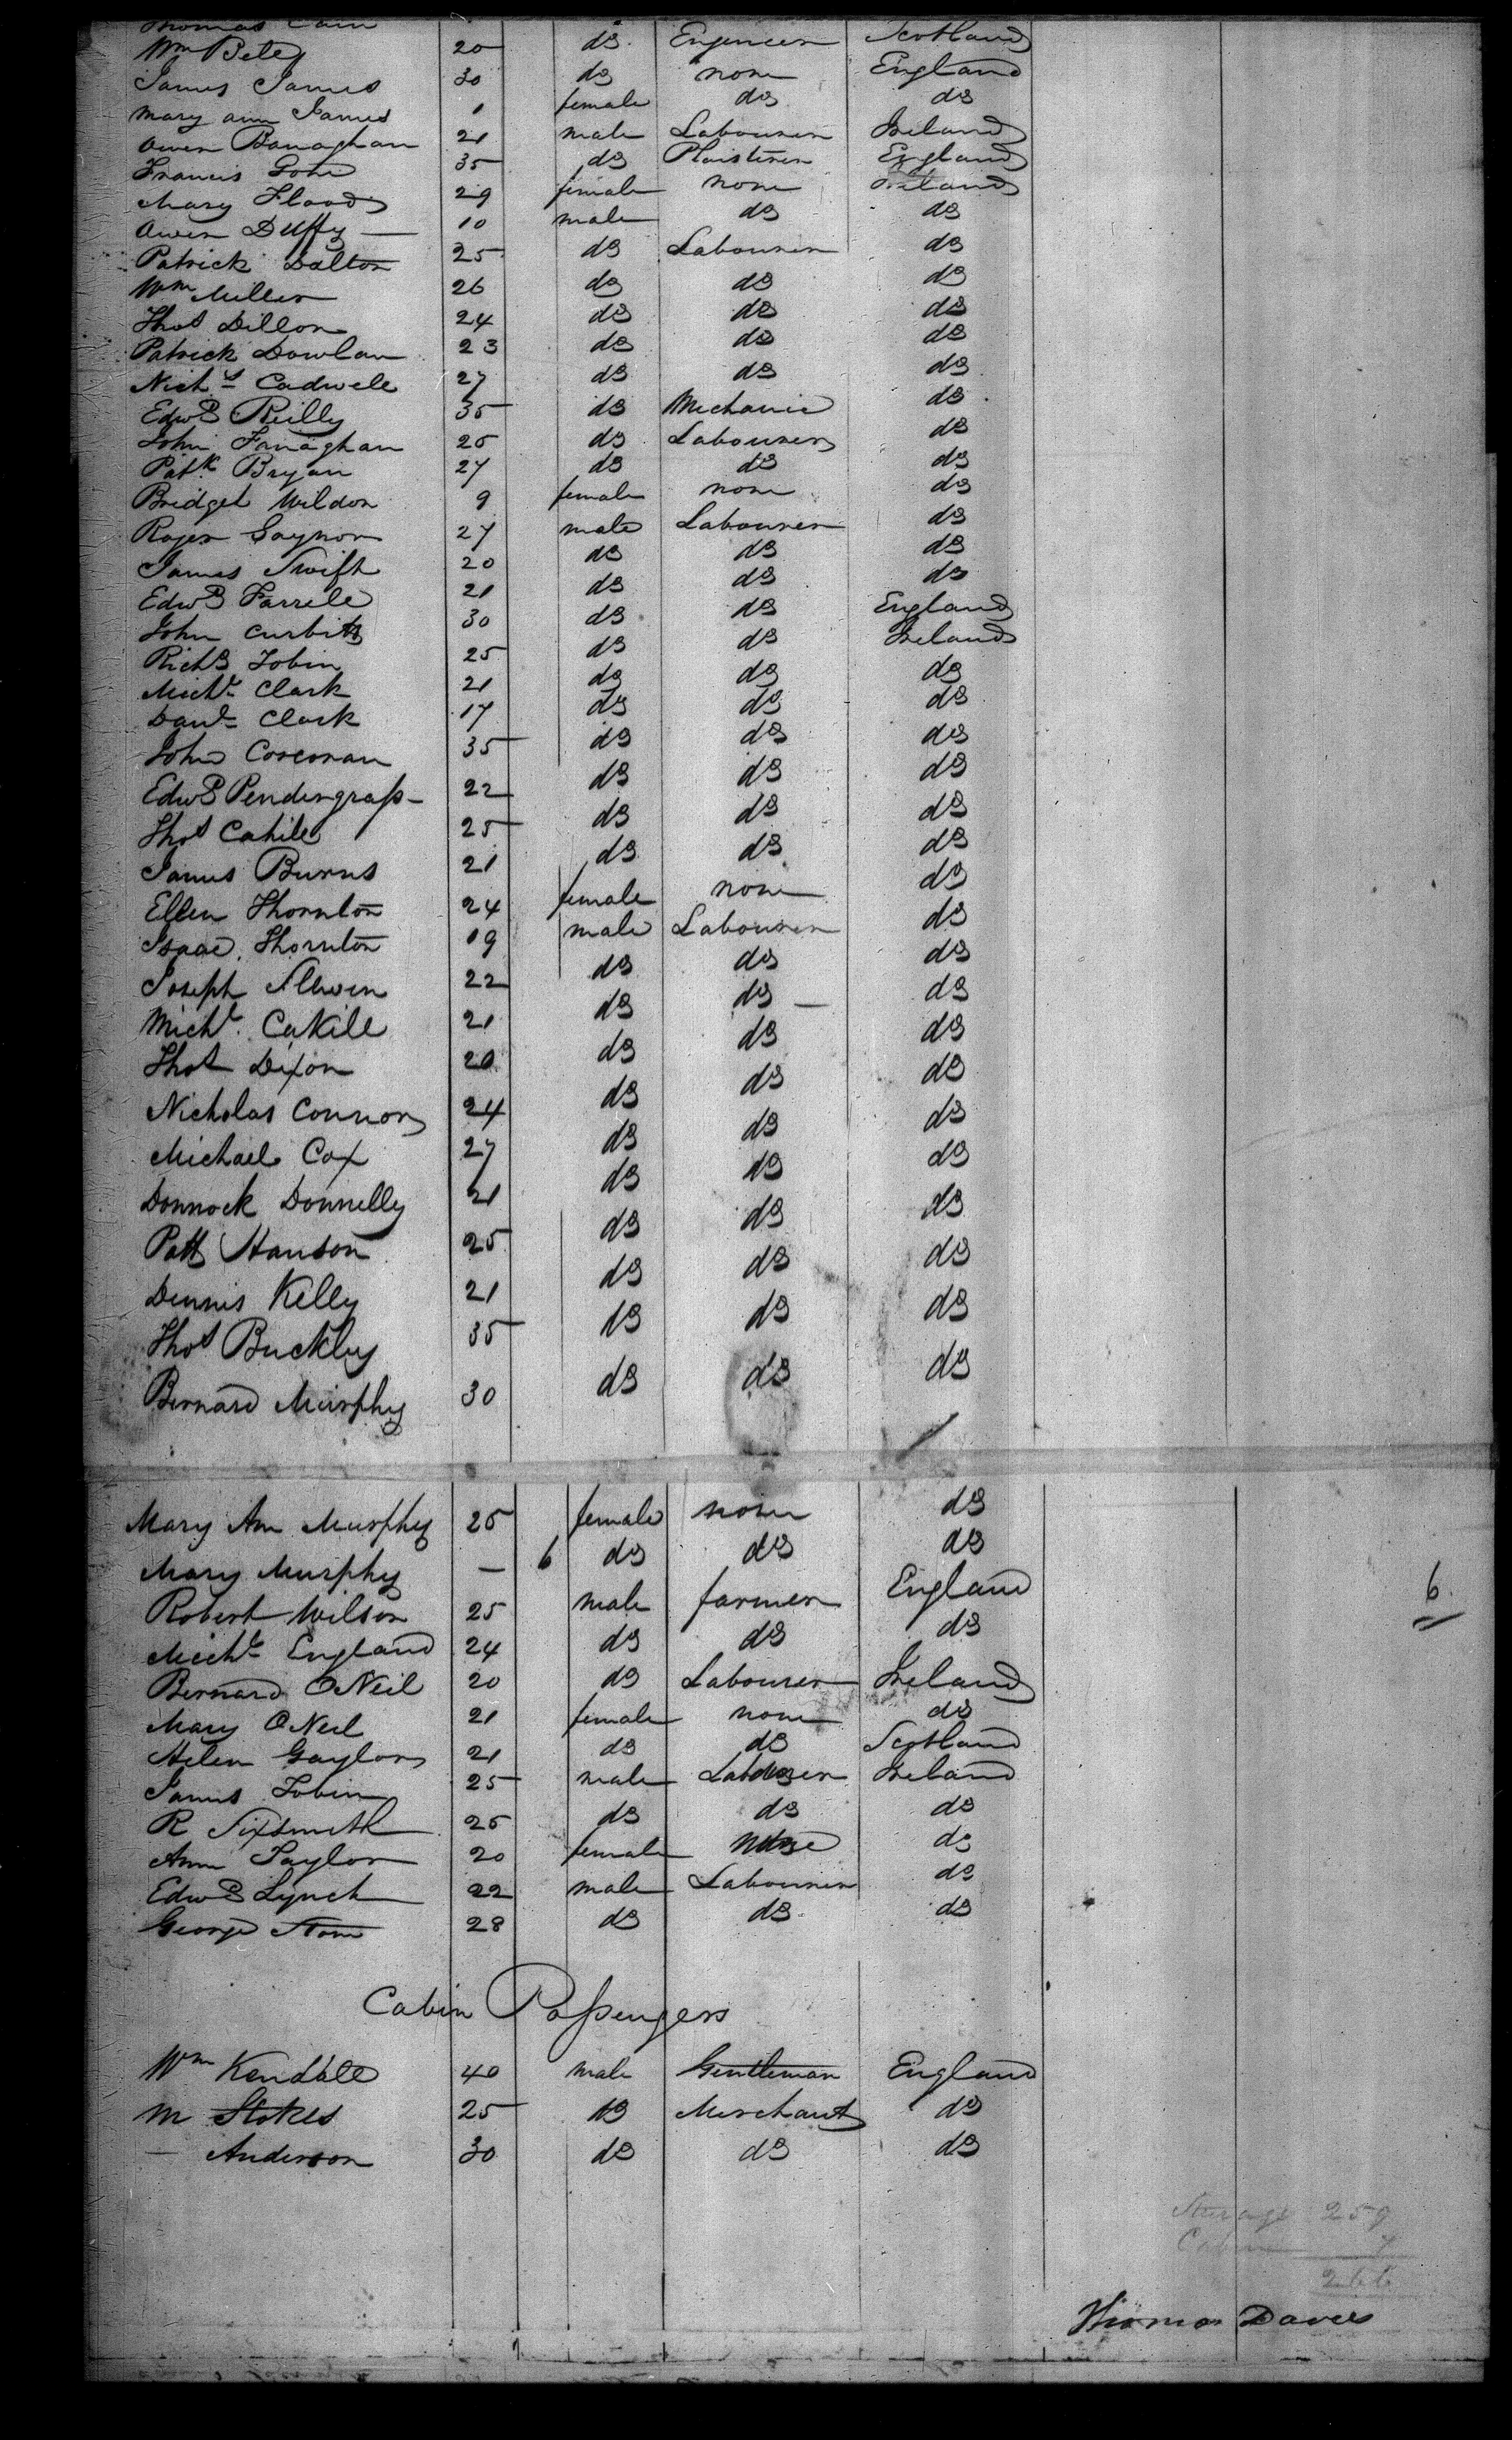 Thomas
Wm Betey 20 do Engineer Scotland
James James 30 do none England
Mary ann James 1 female do do
Owen Banaghan 21 male Labourer Ireland
Francis 35 do Plaisterer England
Mary Flood 29 female none Ireland
Owen Duffy — 10 male do do
Patrick Dalton 25 do Labourer do
Wm Miller 26 do do do
Thos Dillon 24 do do do
Patrick Dowlan 23 do do do
Nichs Cadwell 27 do do do
Edwd Reilly 35 do Mechanic do
John Frnaghan 25 do Labourer do
Patk Bryan 27 do do do
Bridget Wildon 9 female none do
Roger Gaynor 27 male Labourer do
James Swift 20 do do do
Edwd Farrell 21 do do do
John Curbitt 30 do do England
Richd Tobin 25 do do Ireland
Michl Clark 21 do do do
Danl Clark 17 do do do
John Corcoran 35 do do do
Edwd Pendergrass 22 do do do
Thos Cahill 25 do do do
James Burns 21 do do do
Ellen Thornton 24 female none do
Isaac Thornton 19 male Labourer do
Joseph 22 do do do
Michl Cakill 21 do do — do
Thos Dixon 20 do do do
Nicholas Connor 24 do do do
Michael Cox 27 do do do
Donnock Donnelly 21 do do do
Patt Hanson 25 do do do
Dennis Kelly 21 do do do
Thos Buckley 35 do do do
Bernard Murphy 30 do do do
Mary Ann Murphy 25 female none do
Mary Murphy — 6 do do do
Robert Wilson 25 male farmer England 6
Michl England 24 do do do
Bernard ONeil 20 do Labourer Ireland
Mary ONeil 21 female none do
Helen Gaylor 21 do do Scotland
James Tobin 25 male Labourer Ireland
R Sixsmith 25 do do do
Ann Taylor 20 female none do
Edwd Lynch 22 male Labourer do
George Stone 28 do do do
Cabin Passengers
Wm Kendall 40 male Gentleman England
M Stokes 25 do Merchant do
— Anderson 30 do do do
Steerage 259
Cabin 7
266
Thomas Davies